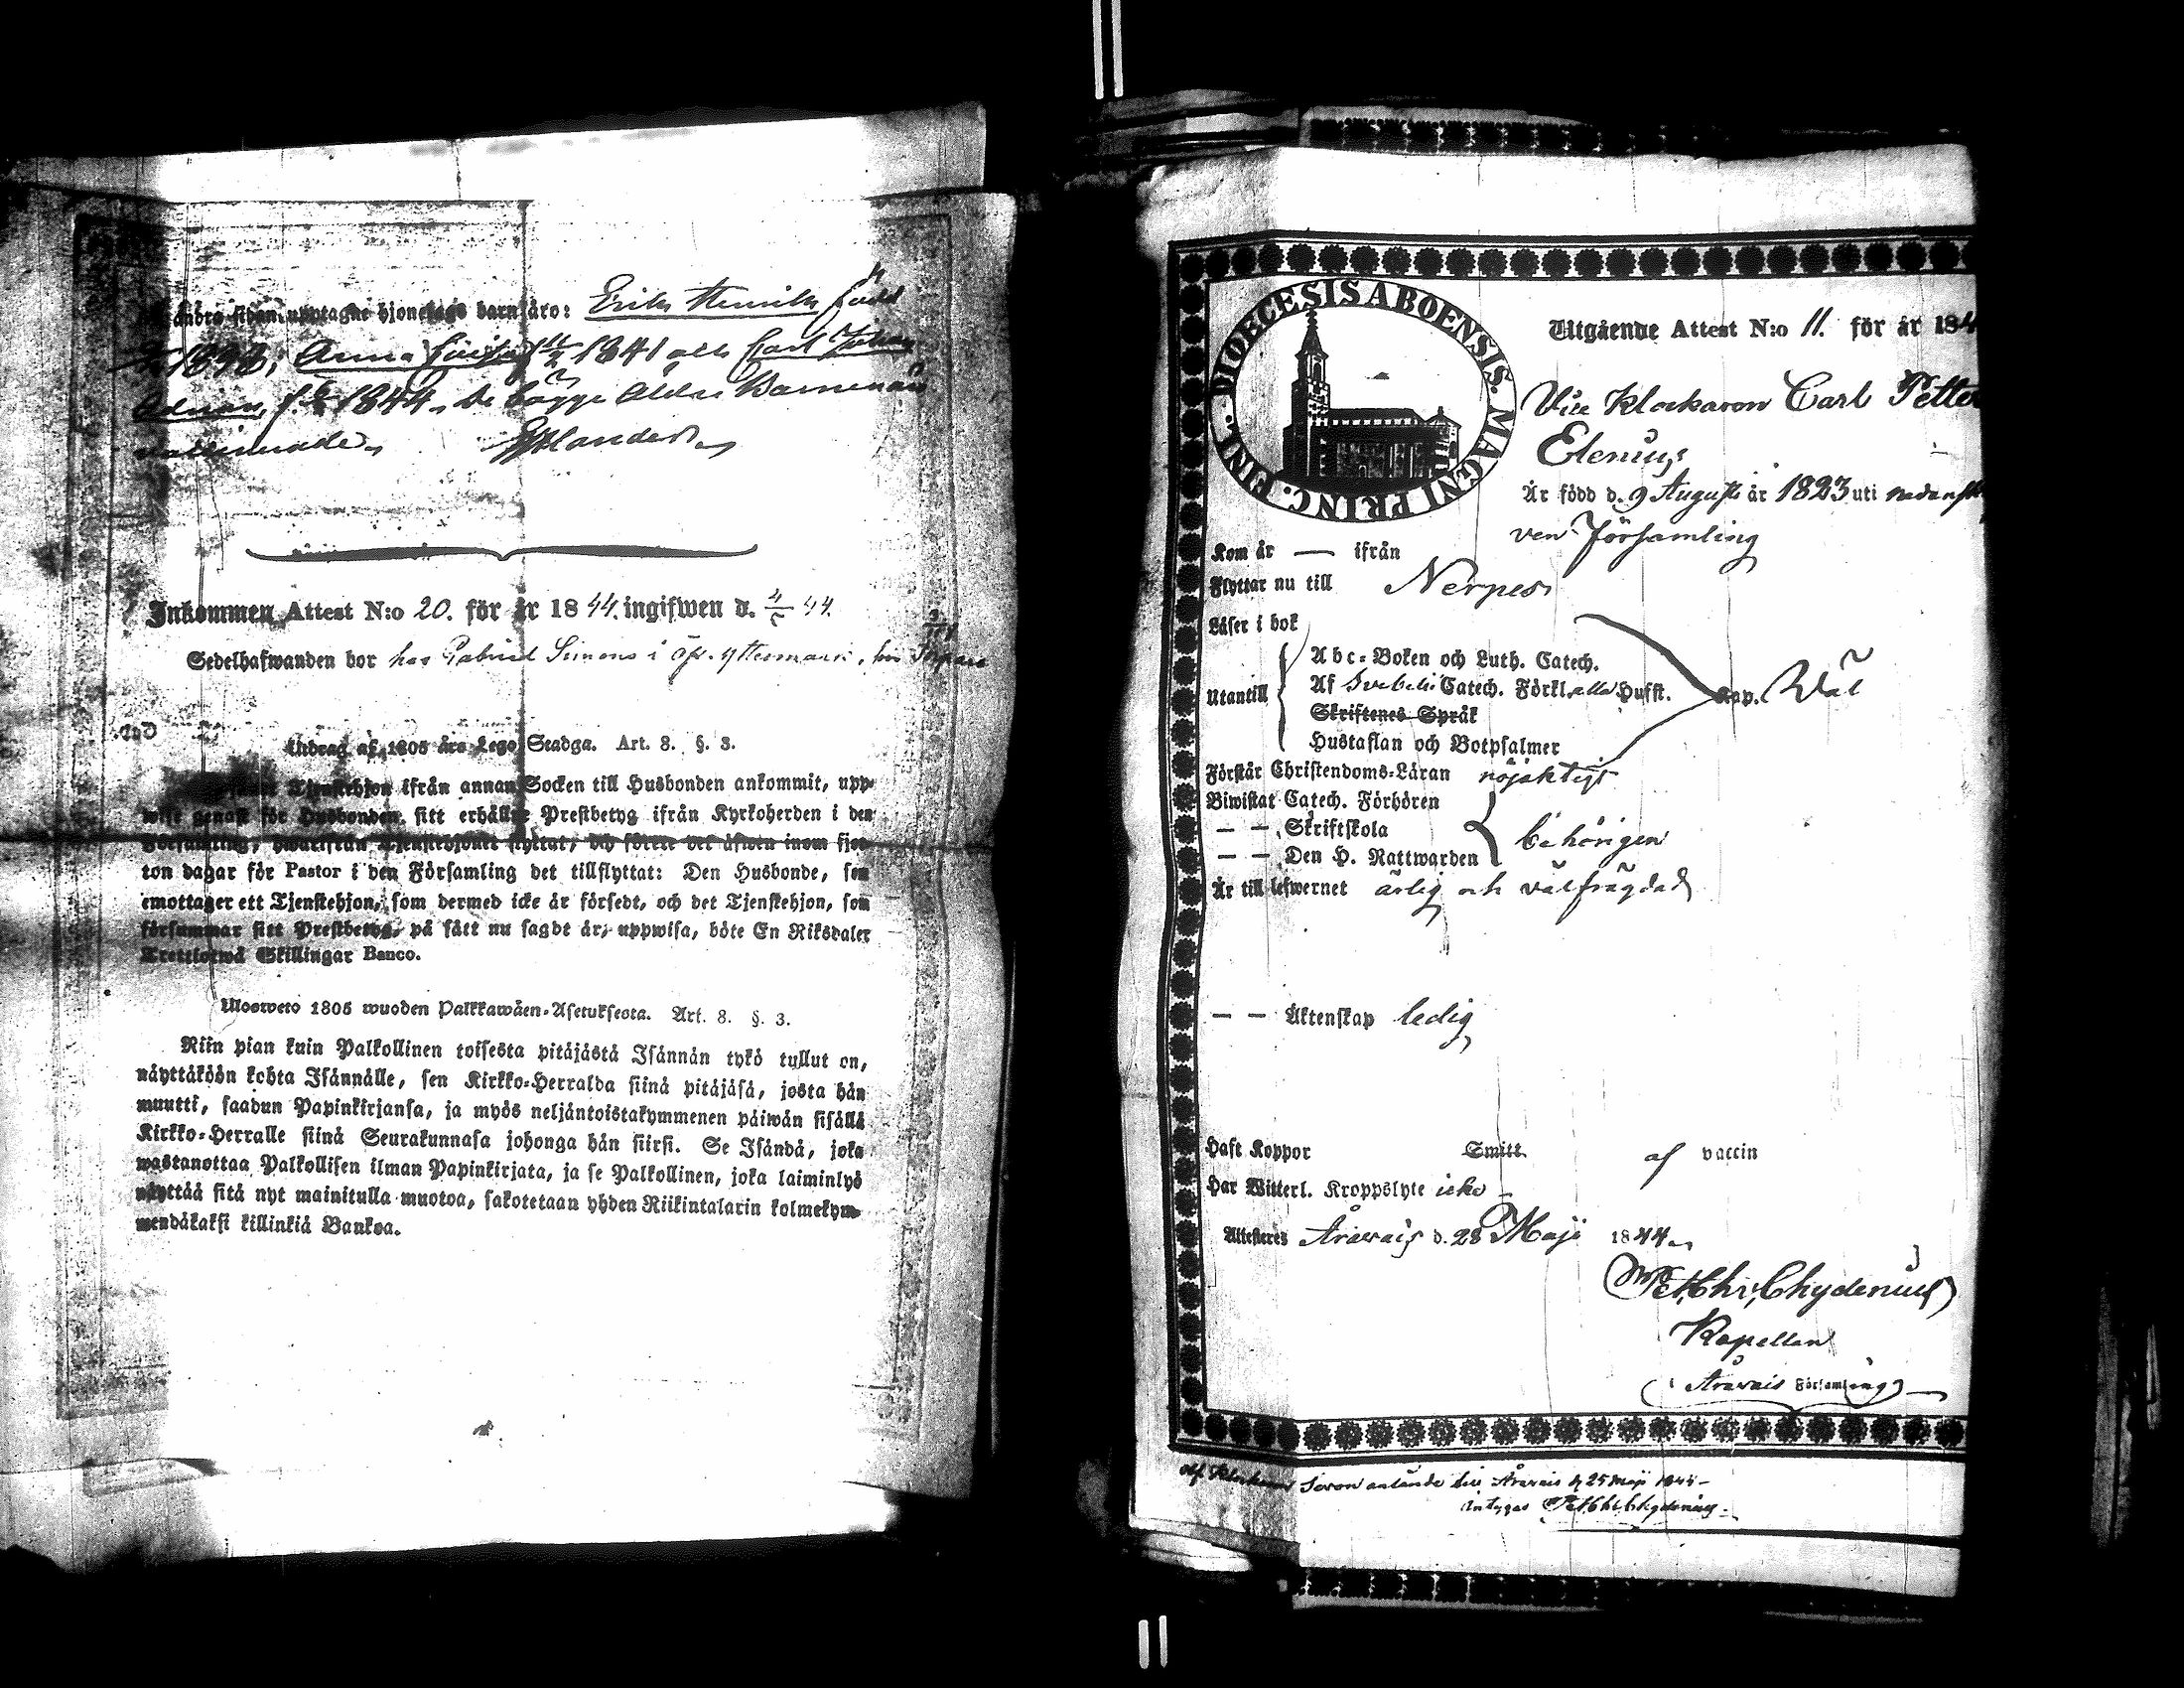 andra sidan upptagne hjonelags barn äro: Erik Henrik född
1838; Anna Lovisa f. 1841 och Carl Johan
f. 1844. De bägge äldre Barnen äro
vaccinerade
Inkommen Attest N:o 20. för år 1844. ingifwen d. 4/ 44.
Sedelhafwanden bor hos Gabriel Simons i Öf. Yttermark.
Utdrag af 1805 års Lego Stadga. Art. 8. §. 3.
Tjenstehjon ifrån annan Socken till Husbonden ankommit, upp-
wise genast för Husbonden sitt erhållne Prestbetyg ifrån Kyrkoherden i den
Församling, hwarifrån Tjenstehjonet flyttat, och förete det äfwen inom fjor-
ton dagar för Pastor i den Församling det tillflyttat: Den Husbonde, som
emottager ett Tjenstehjon, som dermed icke är försedt, och det Tjenstehjon, som
försummar sitt Prestbetyg, på sätt nu sagdt är, uppwisa, böte En Riksdaler
Trettiotwå Skillingar Banco.
Ulosweto 1805 wuoden Palkkawäen-Asetuksesta. Art. 8. §. 3.
Niin pian kuin Palkollinen toisesta pitäjästä Isännän tykö tullut on,
näyttäköön kohta Isännälle, sen Kirkko-Herralda siinä pitäjäsä, josta hän
muutti, saadun Papinkirjansa, ja myös neljäntoistakymmenen päiwän sisällä
Kirkko-Herralle siinä Seurakunnasa johonga hän siirsi. Se Isändä, joka
wastanottaa Palkollisen ilman Papinkirjata, ja se Palkollinen, joka laiminlyö
näyttää sitä nyt mainitulla muotoa, sakotetaan yhden Riikintalarin kolmekym-
mendäkaksi killinkiä Bankoa.
DIOECESIS ABOENSIS. MAGNI PRINC. FINL.
Utgående Attest N:o 11. för år 184
Vice Klockaren Carl Petter
Elenius
Är född d. 9 Augusti år 1823 uti nedanskr
ven Församling
Kom år — ifrån
Flyttar nu till Nerpes
Läser i bok
Utantill
Abc-Boken och Luth. Catech.
Af Svebelii Catech. Förkl. alla Hufst. Kap. Väl
Skriftenes Språk
Hustaflan och Botpsalmer
Förstår Christendoms-Läran nöjaktigt
Biwistat Catech. Förhören
— — Skriftskola behörigen
— — Den H. Nattwarden
Är till lefwernet ärlig och välfrägdad
— — Äktenskap ledig
Haft Koppor Smitt af vaccin
Har Witterl. Kroppslyte icke
Attesteres Årvais d. 28 Maji 1844
Pet. Chr. Chydenius
Kapellan
(i Årvais Församling)
Klockaren anlände till Årvais d 25 Maji 1844
intygar Pet. Chr. Chydenius